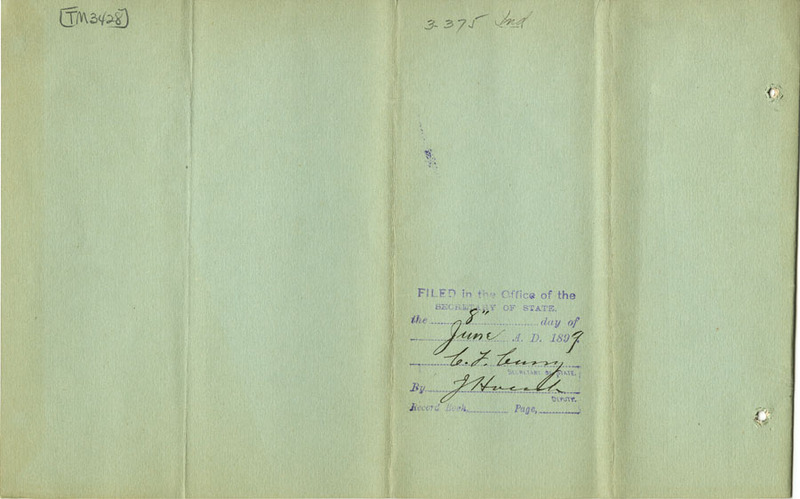 TM3428
3375 Ind
FILED in the Office of the
SECRETARY OF STATE.
the 8" day of
June A. D. 1899
C. F. Curry
SECRETARY OF STATE.
By J Hoesch
DEPUTY.
Record Book Page,